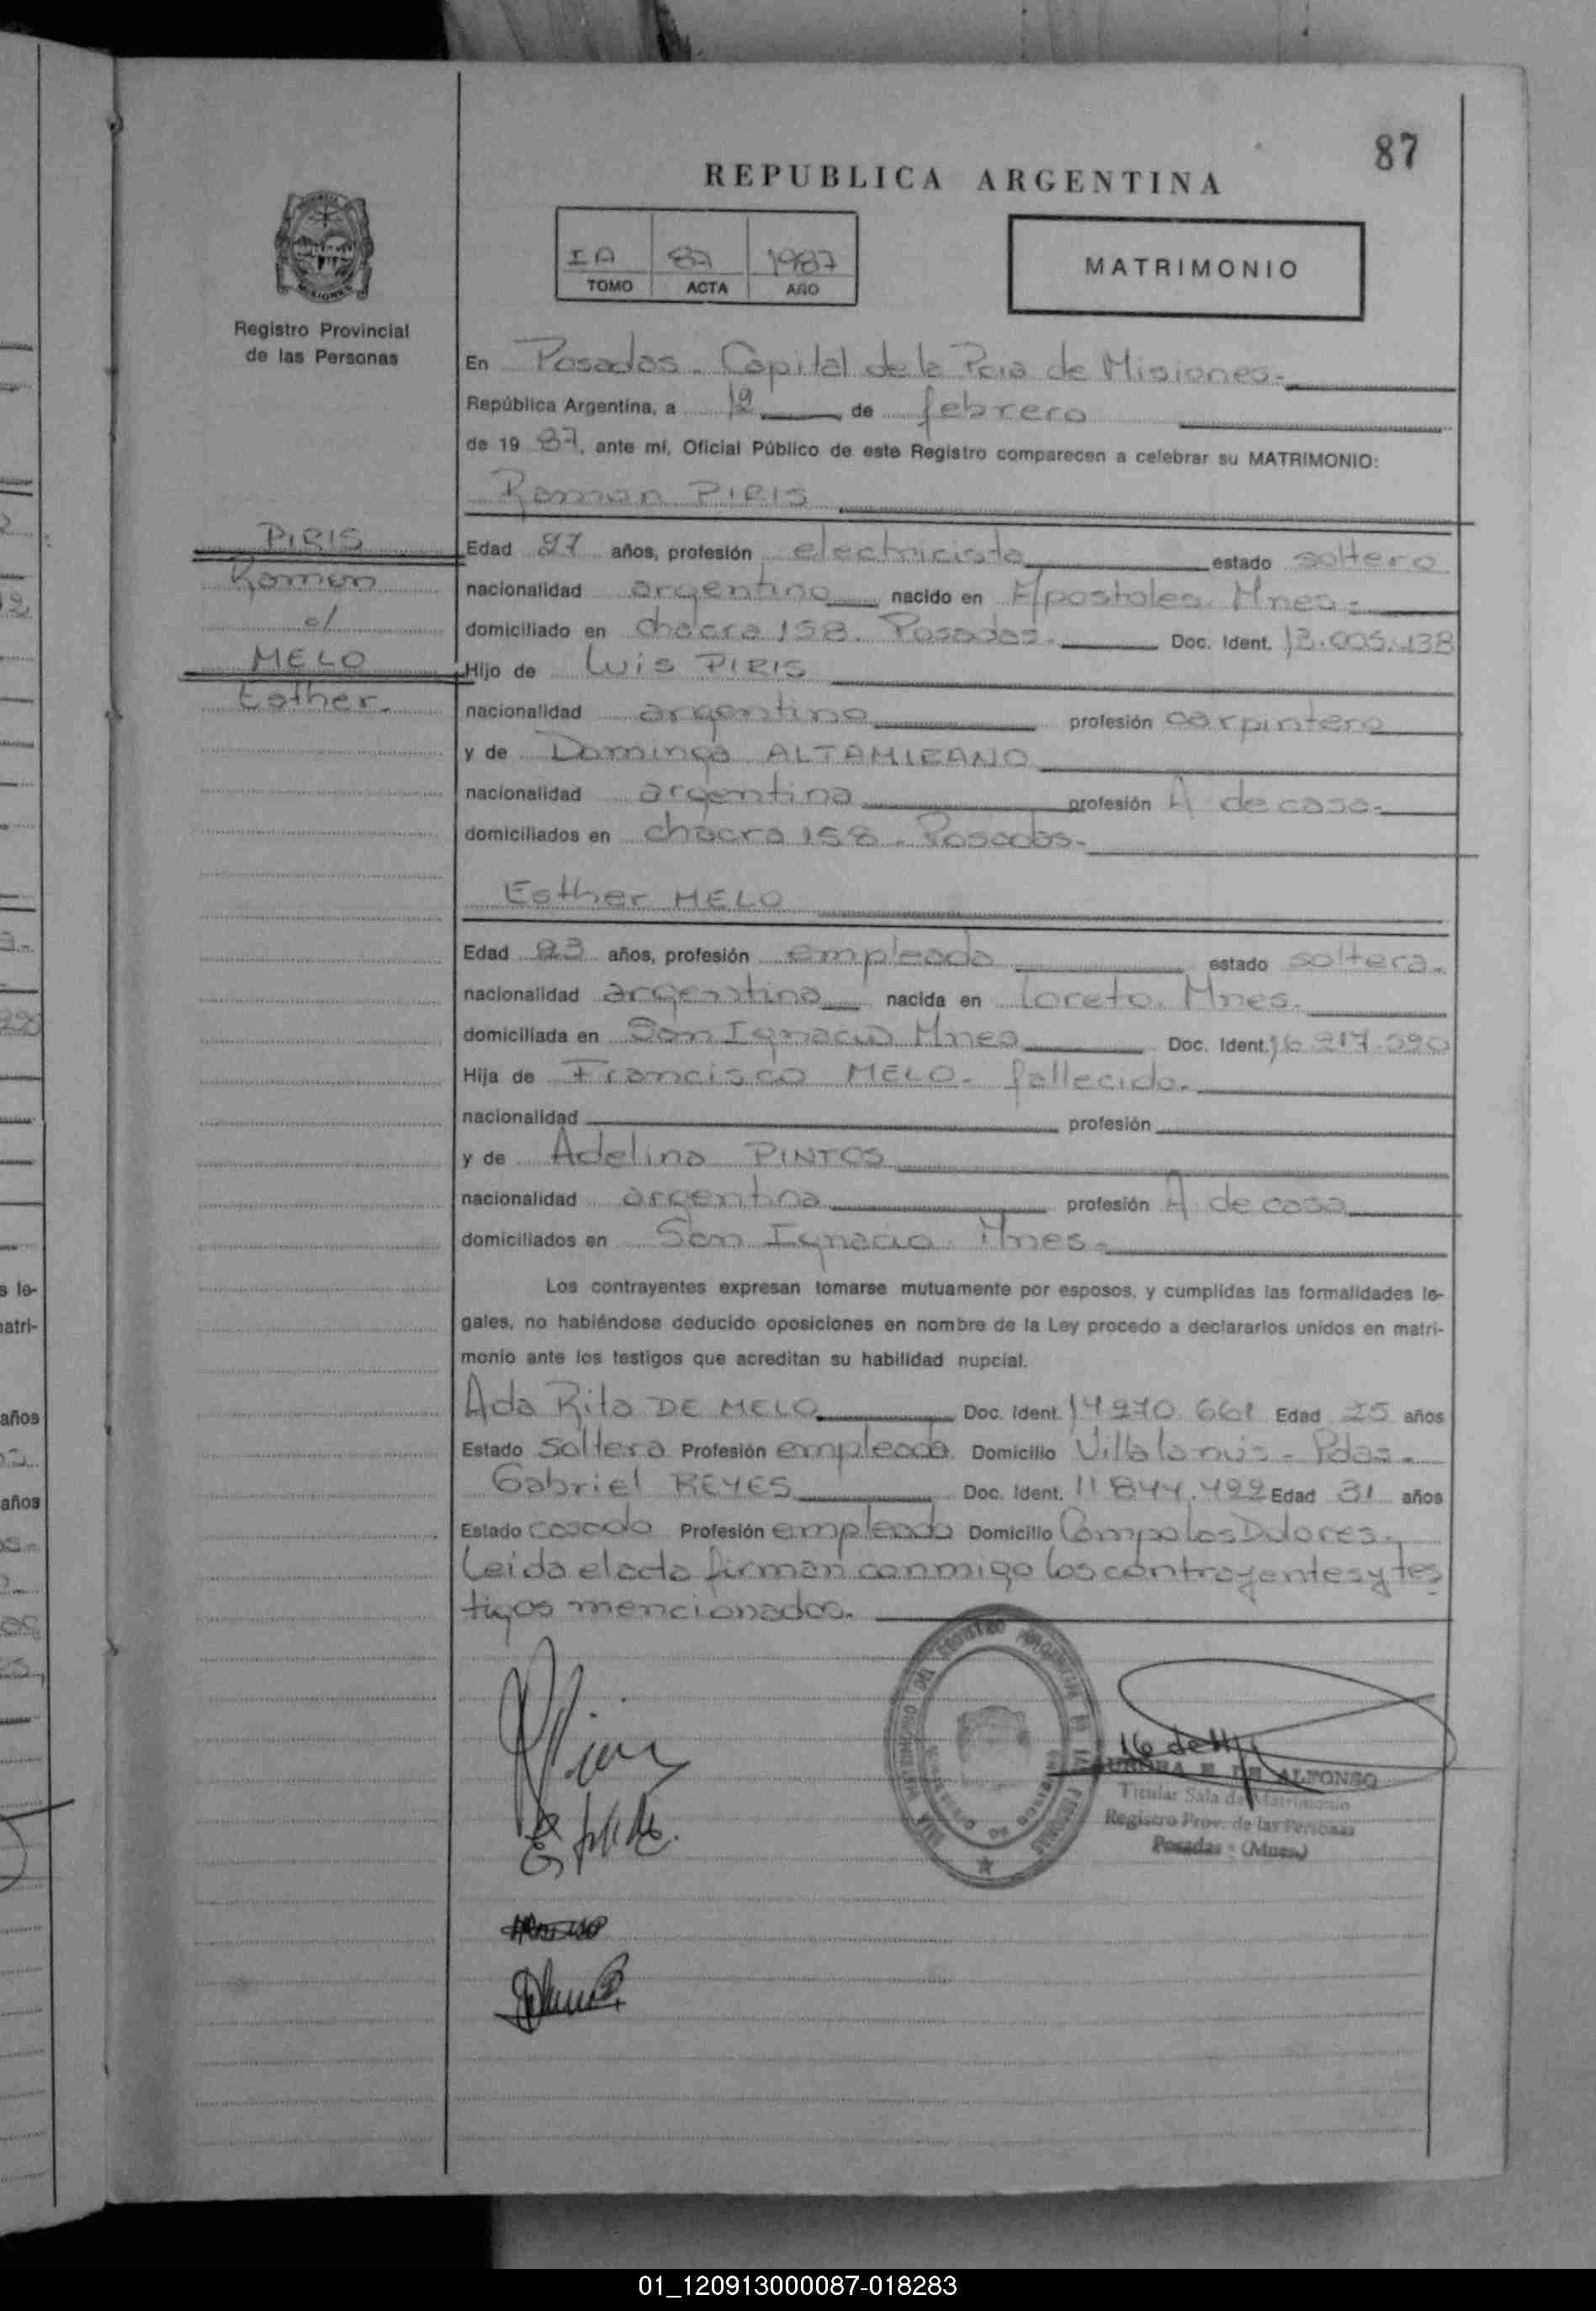 87
REPUBLICA ARGENTINA
IA 87 1987
TOMO ACTA AÑO
MATRIMONIO
Registro Provincial
de las Personas
En Posadas. Capital de la Pcia de Misiones.-
República Argentina, a 12 de febrero
de 19 87, ante mí, Oficial Público de este Registro comparecen a celebrar su MATRIMONIO:
Ramon PIRIS
PIRIS
Ramon
c/
MELO
Esther.
Edad 27 años, profesión electricista estado soltero
nacionalidad argentino nacido en Apostoles. Mnes.-
domiciliado en chacra 158. Posadas.- Doc. Ident. 13.005.138
Hijo de Luis PIRIS
nacionalidad argentino profesión carpintero
y de Dominga ALTAMIRANO
nacionalidad argentina profesión A de casa.-
domiciliados en chacra 158. Posadas.-
Esther MELO
Edad 23 años, profesión empleada estado soltera.
nacionalidad argentina nacida en Loreto. Mnes.
domiciliada en San Ignacio Mnes Doc. Ident. 16.217.590
Hija de Francisco MELO. fallecido.
nacionalidad profesión
y de Adelina PINTOS
nacionalidad argentina profesión A. de casa
domiciliados en San Ignacio. Mnes.-
Los contrayentes expresan tomarse mutuamente por esposos, y cumplidas las formalidades le-
gales, no habiéndose deducido oposiciones en nombre de la Ley procedo a declararlos unidos en matri-
monio ante los testigos que acreditan su habilidad nupcial.
Ada Rita DE MELO Doc. Ident. 14 270.661 Edad 25 años
Estado Soltera Profesión empleada. Domicilio Villa lanús - Pdas.-
Gabriel REYES Doc. Ident. 11 844.422 Edad 31 años
Estado casado Profesión empleado Domicilio Campo los Dolores.-
Leida el acta firman conmigo los contrayentes y tes
tigos mencionados.
AURORA E. DE ALFONSO
Titular Sala de Matrimonio
Registro Prov. de las Personas
Posadas - (Mnes.)
01_120913000087-018283